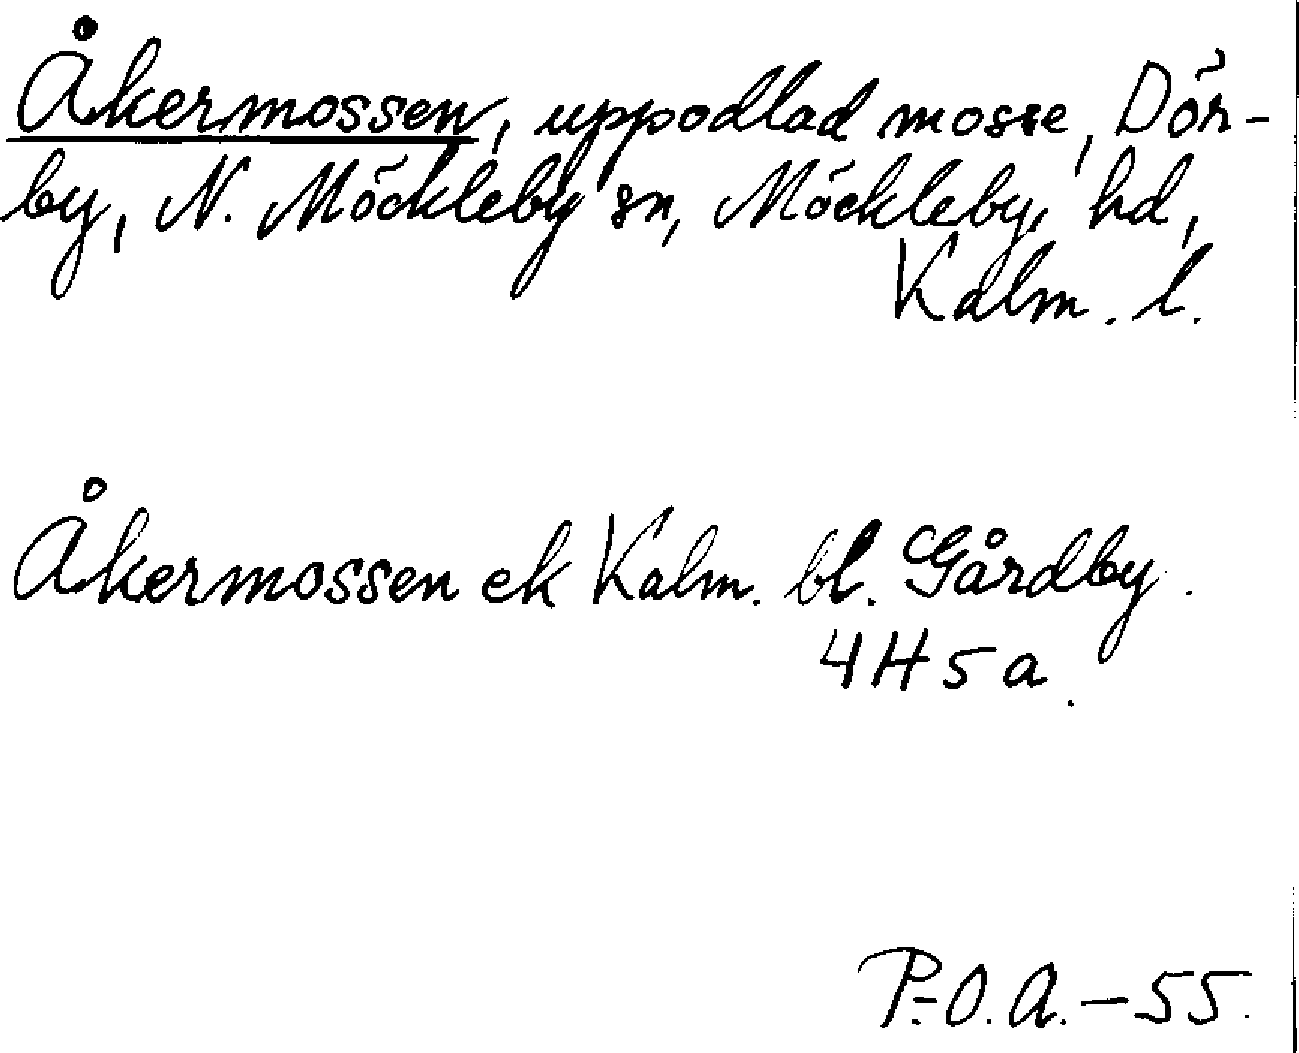 Åkermossen, uppodlad mosse, Dör-
by, N. Möckleby sn, Möckleby hd,
Kalm. l.
Åkermossen ek Kalm. bl. Gårdby.
4H5a.
P.-O.A.-55.